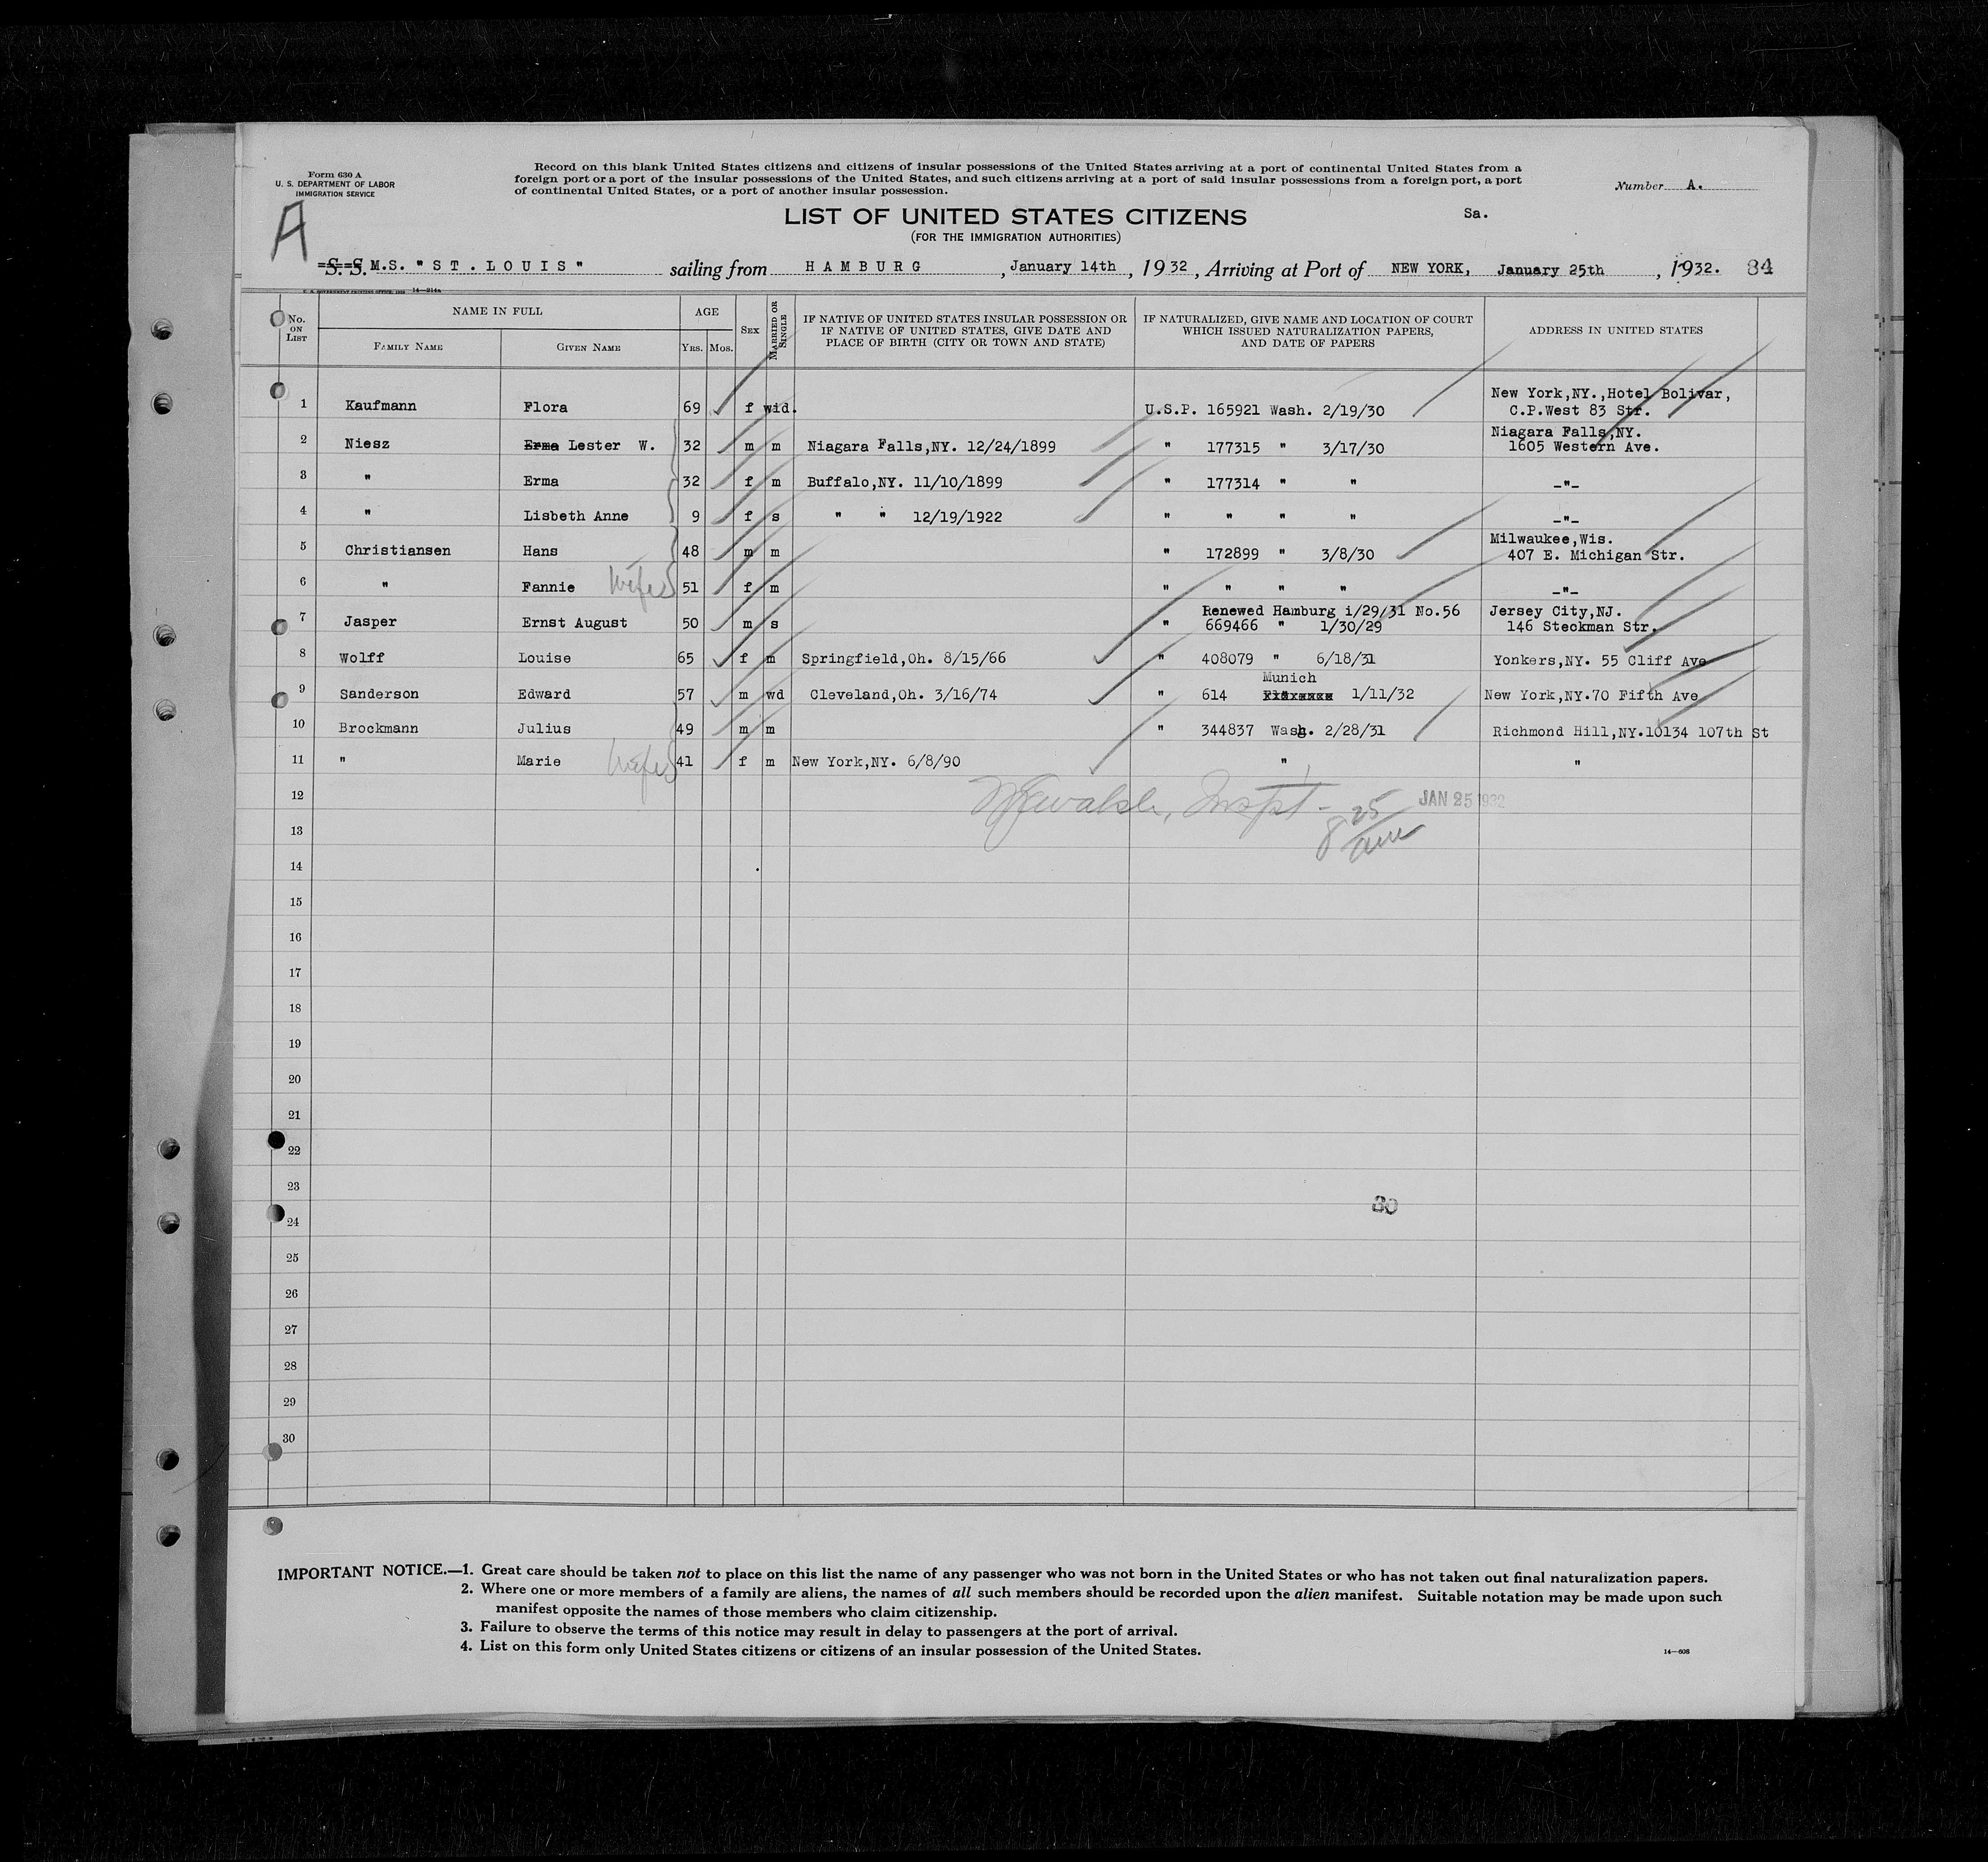 Form 630 A
U. S. DEPARTMENT OF LABOR
IMMIGRATION SERVICE
Record on this blank United States citizens and citizens of insular possessions of the United States arriving at a port of continental United States from a
foreign port or a port of the insular possessions of the United States, and such citizens arriving at a port of said insular possessions from a foreign port, a port
of continental United States, or a port of another insular possession.
Number A.
A
LIST OF UNITED STATES CITIZENS
Sa.
(FOR THE IMMIGRATION AUTHORITIES)
S. S. M.S. "ST.LOUIS" sailing from HAMBURG, January 14th, 1932, Arriving at Port of NEW YORK, January 25th, 1932. 84
14—214a
No. ON LIST
NAME IN FULL
FAMILY NAME
GIVEN NAME
AGE
YRS.
MOS.
SEX
MARRIED OR SINGLE
IF NATIVE OF UNITED STATES INSULAR POSSESSION OR
IF NATIVE OF UNITED STATES, GIVE DATE AND
PLACE OF BIRTH (CITY OR TOWN AND STATE)
IF NATURALIZED, GIVE NAME AND LOCATION OF COURT
WHICH ISSUED NATURALIZATION PAPERS,
AND DATE OF PAPERS
ADDRESS IN UNITED STATES
1 Kaufmann Flora 69 f wid. U.S.P. 165921 Wash. 2/19/30 New York,NY.,Hotel Bolivar,
C.P.West 83 Str.
2 Niesz Erma Lester W. 32 m m Niagara Falls,NY. 12/24/1899 " 177315 " 3/17/30 Niagara Falls,NY.
1605 Western Ave.
3 " Erma 32 f m Buffalo,NY. 11/10/1899 " 177314 " " -"-
4 " Lisbeth Anne 9 f s " " 12/19/1922 " " " " -"-
5 Christiansen Hans 48 m m " 172899 " 3/8/30 Milwaukee,Wis.
407 E. Michigan Str.
6 " Fannie Wife 51 f m " " " " -"-
Renewed Hamburg 1/29/31 No.56
7 Jasper Ernst August 50 m s " 669466 " 1/30/29 Jersey City,NJ.
146 Steckman Str.
8 Wolff Louise 65 f m Springfield,Oh. 8/15/66 " 408079 " 6/18/31 Yonkers,NY. 55 Cliff Ave
Munich
9 Sanderson Edward 57 m wd Cleveland,Oh. 3/16/74 " 614 1/11/32 New York,NY.70 Fifth Ave
10 Brockmann Julius 49 m m " 344837 Wash. 2/28/31 Richmond Hill,NY.10134 107th St
11 " Marie Wife 41 f m New York,NY. 6/8/90 " "
12
Walsh, Inspt - JAN 25 1932
8 25
am
13
14
15
16
17
18
19
20
21
22
23
80
24
25
26
27
28
29
30
IMPORTANT NOTICE.—1. Great care should be taken not to place on this list the name of any passenger who was not born in the United States or who has not taken out final naturalization papers.
2. Where one or more members of a family are aliens, the names of all such members should be recorded upon the alien manifest. Suitable notation may be made upon such
manifest opposite the names of those members who claim citizenship.
3. Failure to observe the terms of this notice may result in delay to passengers at the port of arrival.
4. List on this form only United States citizens or citizens of an insular possession of the United States.
14—608